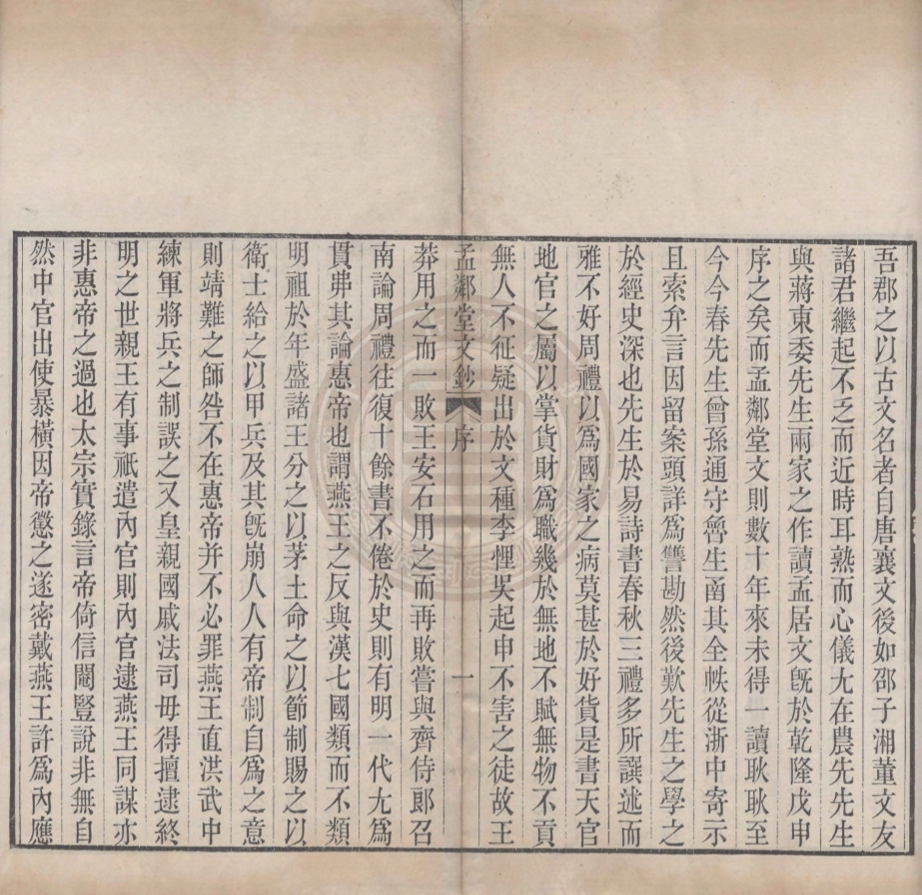 吾郡之以古文名者自唐襄文後如邵子湘董文友
諸君繼起不乏而近時耳熟而心儀尤在農先先生
與蔣東委先生兩家之作讀孟居文旣於乾隆戊申
序之矣而孟鄰堂文則數十年來未得一讀耿耿至
今今春先生曾孫通守魯生甫其全帙從浙中寄示
且索弁言因留案頭詳爲讐勘然後歎先生之學之
於經史深也先生於易詩書春秋三禮多所譔述而
雅不好周禮以爲國家之病莫甚於好貨是書天官
地官之屬以掌貨財爲職幾於無地不賦無物不貢
無人不征疑出於文種李悝吳起申不害之徒故王
孟鄰堂文鈔 序 一
莽用之而一敗王安石用之而再敗嘗與齊侍郞召
南論周禮往復十餘書不倦於史則有明一代尤爲
貫弗其論惠帝也謂燕王之反與漢七國類而不類
明祖於年盛諸王分之以茅土命之以節制賜之以
衛士給之以甲兵及其旣崩人人有帝制自爲之意
則靖難之師咎不在惠帝并不必罪燕王直洪武中
練軍將兵之制誤之又皇親國戚法司毋得擅逮終
明之世親王有事祇遣內官則內官逮燕王同謀亦
非惠帝之過也太宗實錄言帝倚信閹豎說非無自
然中官出使暴橫因帝懲之遂密戴燕王許爲內應